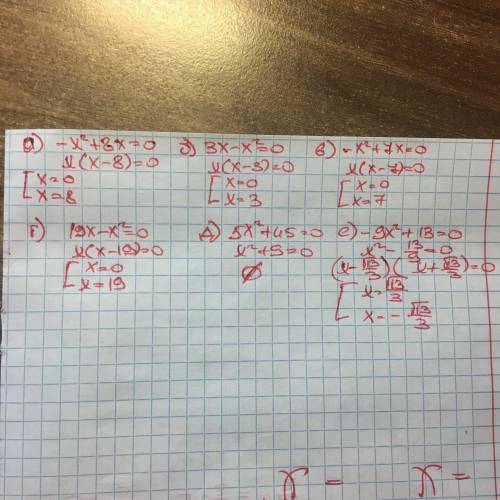 а) -x²+8x=0
x(x-8)=0
[x=0
x=8
б) 3x-x²=0
x(x-3)=0
[x=0
x=3
в) -x²+7x=0
x(x-7)=0
[x=0
x=7
г) 19x-x²=0
x(x-19)=0
[x=0
x=19
д) 5x²+45=0
x²+9=0
∅
е) -9x²+13=0
x²-13/9=0
(x-√13/3)(x+√13/3)=0
[x=√13/3
x=-√13/3
x = x =